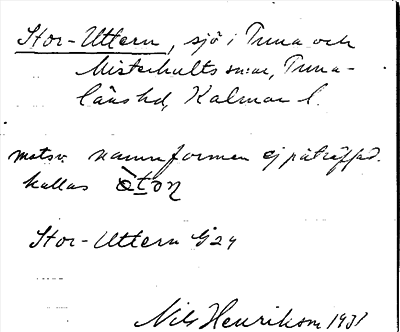 Stor-Uttern, sjö i Tuna och
Misterhults snar, Tuna-
läns hd, Kalmar l.
motsv. namnformen ej påträffad.
kallas òtoɳ
Stor-Uttern G 24
Nils Henrikson 1931